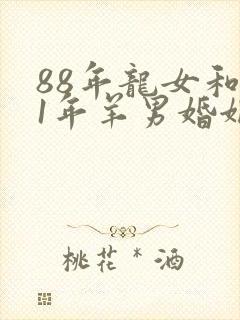 88年龍女和
1年羊男婚姻
桃花*酒